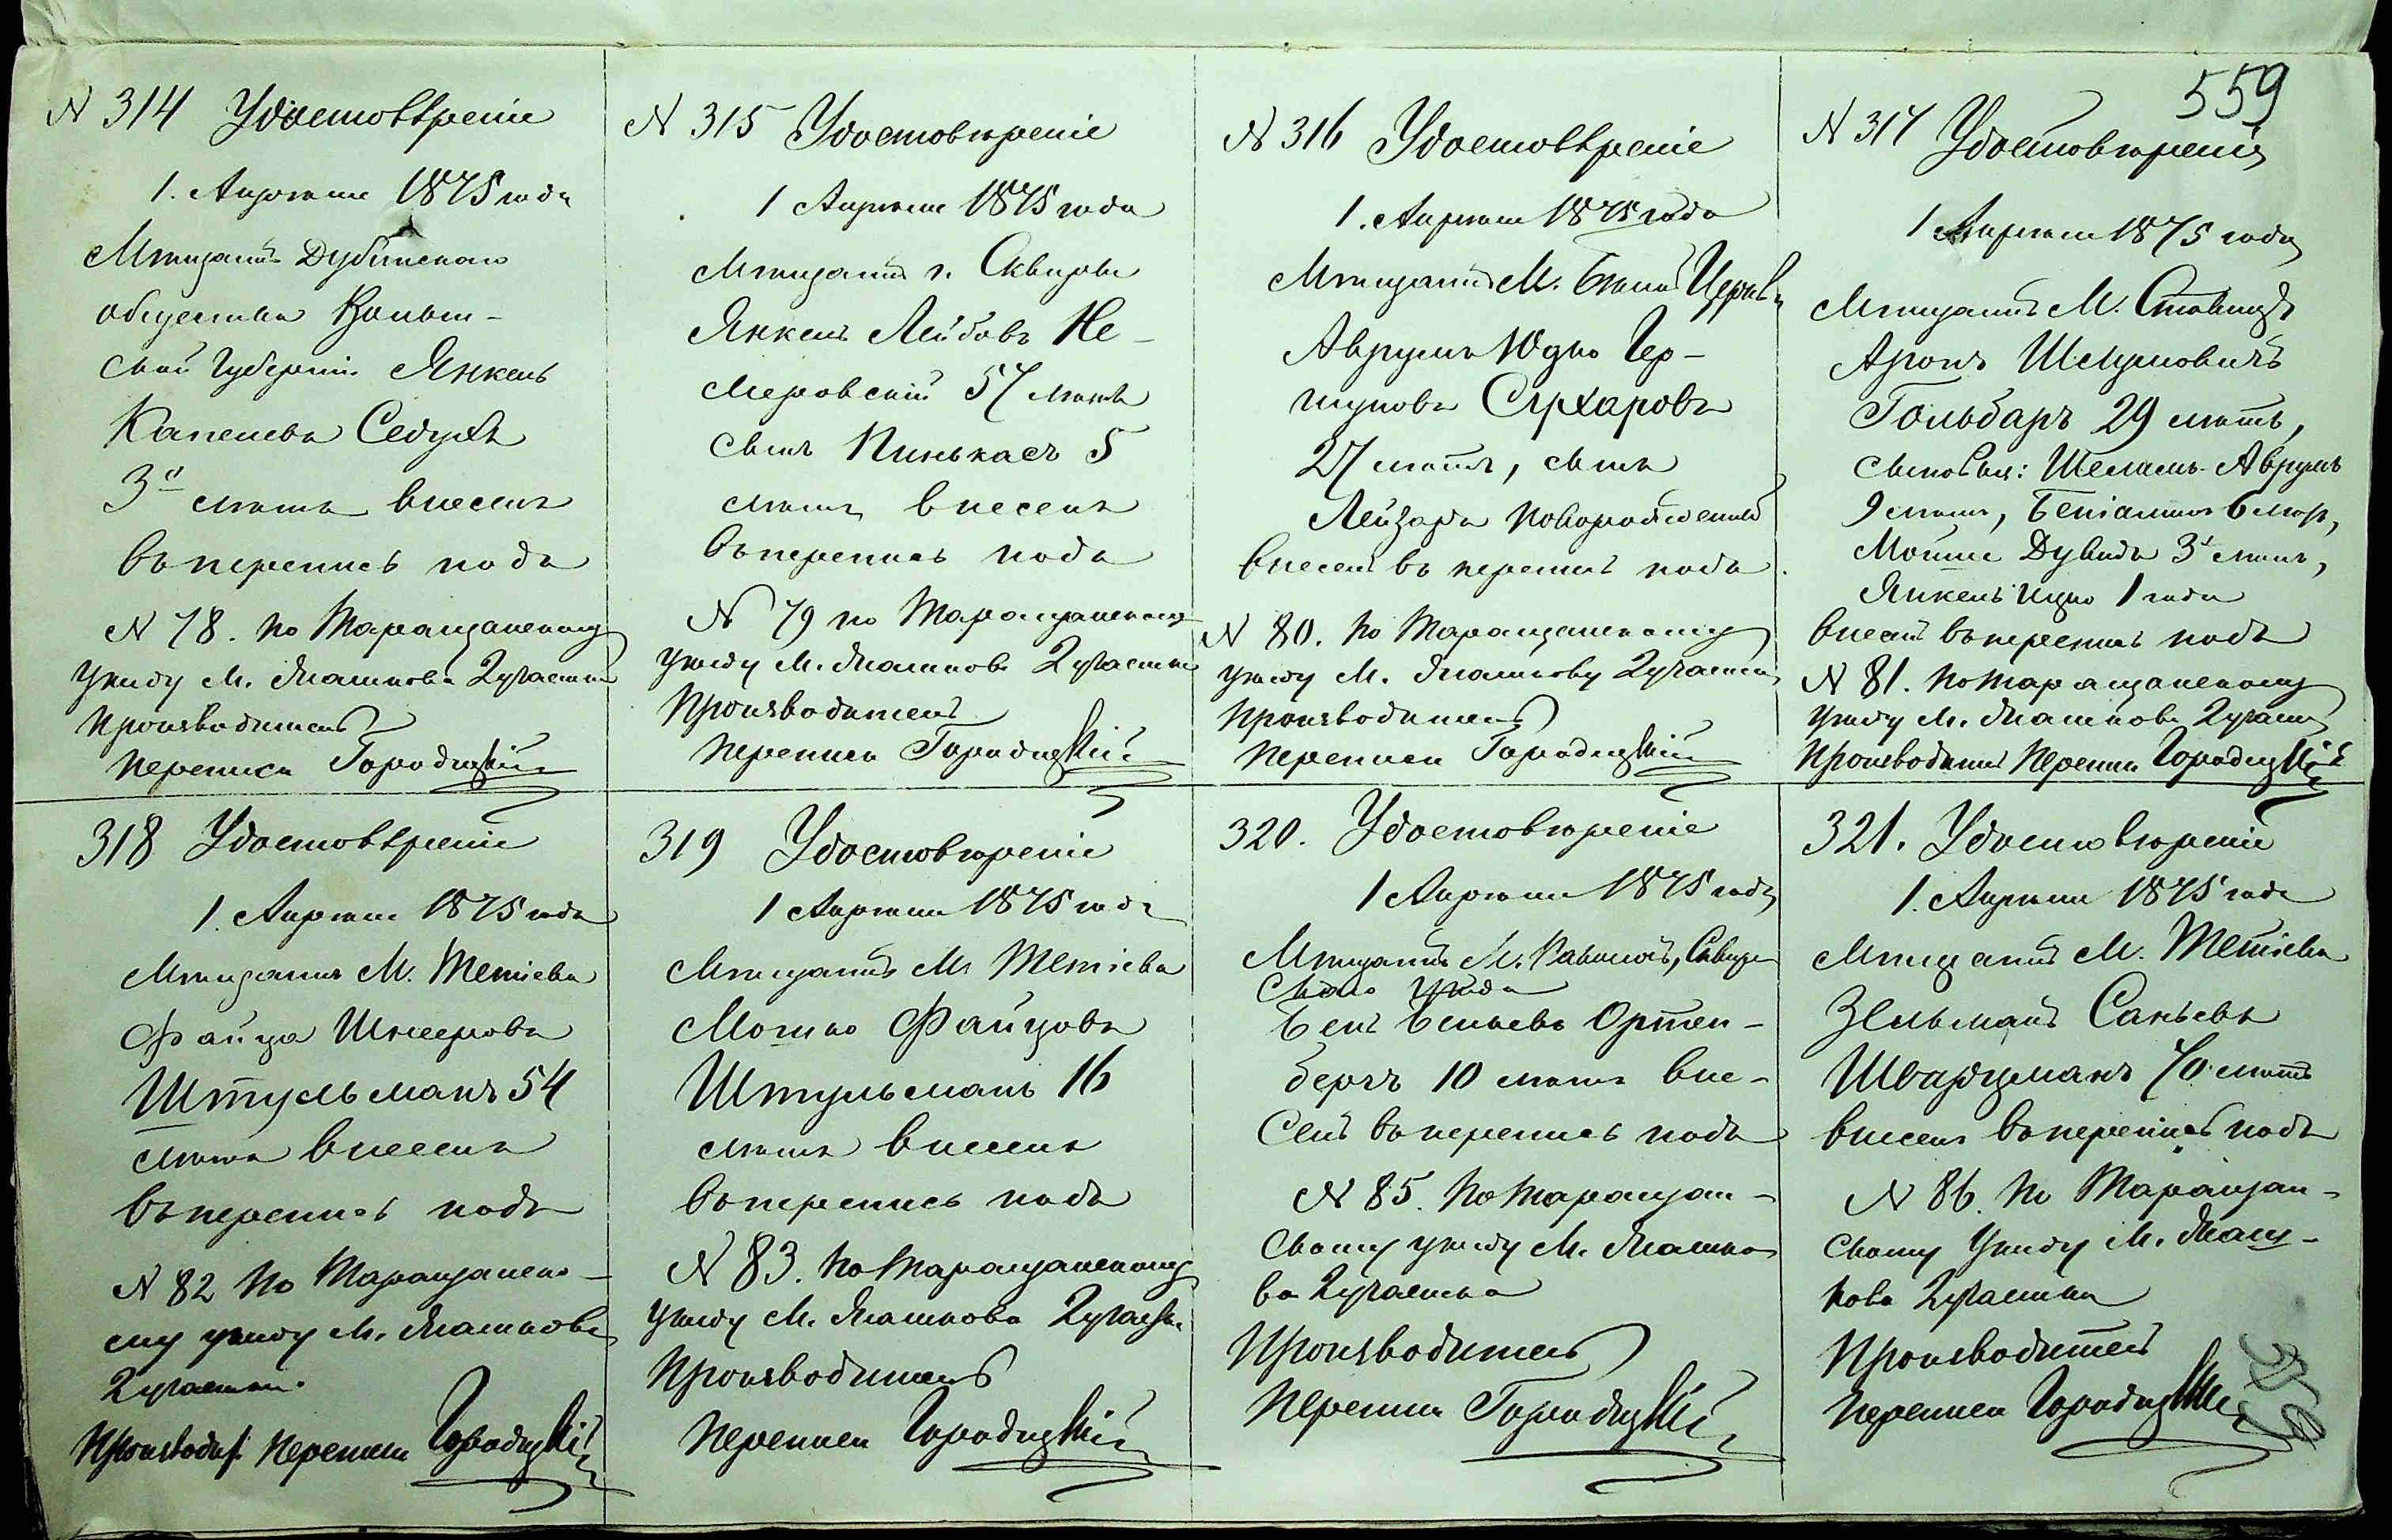 559
N 314 Удостовѣреніе
1. Апрѣля 1875 года
Мѣщанинъ Дубенскаго
общества Волын-
ской Губерніи Янкель
Капелева
3 лѣтъ внесенъ
въ перепись подъ
N 78. по Таращанскому
уѣзду М. Пятигоры 2 участка
Производитель
переписи Городицкій
N 315 Удостовѣреніе
1 Апрѣля 1875 года
Мѣщанинъ г. Сквиры
Янкель Лейбовъ Не-
меровскій 57 лѣтъ
сынъ Пинькасъ 5
лѣтъ внесенъ
въ перепись подъ
N 79 по Таращанскому
уѣзду М. 2 участка
Производитель
переписи Городицкій
N 316 Удостовѣреніе
1. Апрѣля 1875 года
Мѣщанинъ М. Бѣлой Церкви
Аврумъ Юдко Гер-
шковъ Сухаровъ
27 лѣтъ, сынъ
Лейзоръ новорожденный
внесенъ въ перепись подъ
N 80. по Таращанскому
уѣзду М. 2 участка
Производитель
переписи Городицкій
N 317 Удостовѣреніе
1 Апрѣля 1875 года
Мѣщанинъ М. Ставищъ
Аронъ Шмулёвичъ
Гольдаръ 29 лѣтъ,
сыновья: Аврумъ
9 лѣтъ, Беніаминъ 6 лѣтъ,
Мошке Дувидъ 3 лѣтъ,
Янкель Ицко 1 года
внесенъ въ перепись подъ
N 81. по Таращанскому
уѣзду М. 2 участка
Производитель переписи Городицкій
318 Удостовѣреніе
1. Апрѣля 1875 года
Мѣщанинъ М. Тетіева
Файца Шмееровъ
Штульманъ 54
лѣтъ внесенъ
въ перепись подъ
N 82 по Таращанско-
му уѣзду М.
2 участка.
Производ. переписи Городицкій
319 Удостовѣреніе
1 Апрѣля 1875 года
Мѣщанинъ М. Тетіева
Мошко Файцовъ
Штульманъ 16
лѣтъ внесенъ
въ перепись подъ
N 83. по Таращанскому
уѣзду М. 2 участка
Производитель
переписи Городицкій
320. Удостовѣреніе
1 Апрѣля 1875 года
Мѣщанинъ М. Сквир-
скаго уѣзда
Бень Беньевъ Ортен-
бергъ 10 лѣтъ вне-
сенъ въ перепись подъ
N 85. по Таращан-
скому уѣзду М.
2 участка
Производитель
переписи Городицкій
321. Удостовѣреніе
1. Апрѣля 1875 года
Мѣщанинъ М. Тетіева
Зельманъ Саньевъ
Швардманъ 70 лѣтъ
внесенъ въ перепись подъ
N 86. по Таращан-
скому уѣзду М.
2 участка
Производитель
переписи Городицкій